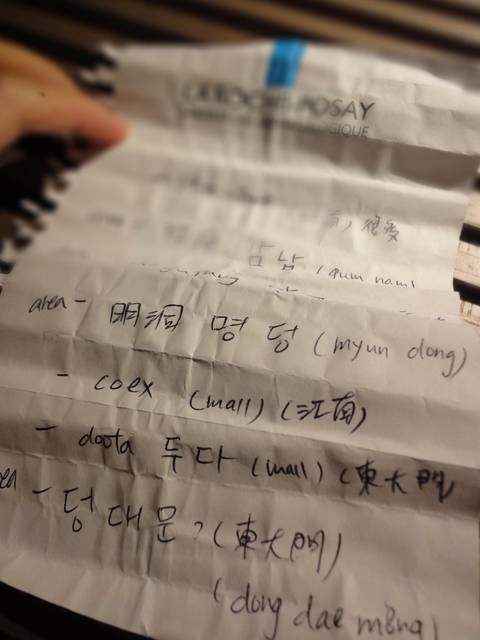 LA ROCHE-POSAY
很多
남 (gum nam)
area - 明洞 명덩 (myun dong)
- coex (mall) (江南)
- doota 두다 (mall) (東大門
- 덩대문? (東大門)
(dong dae mong)